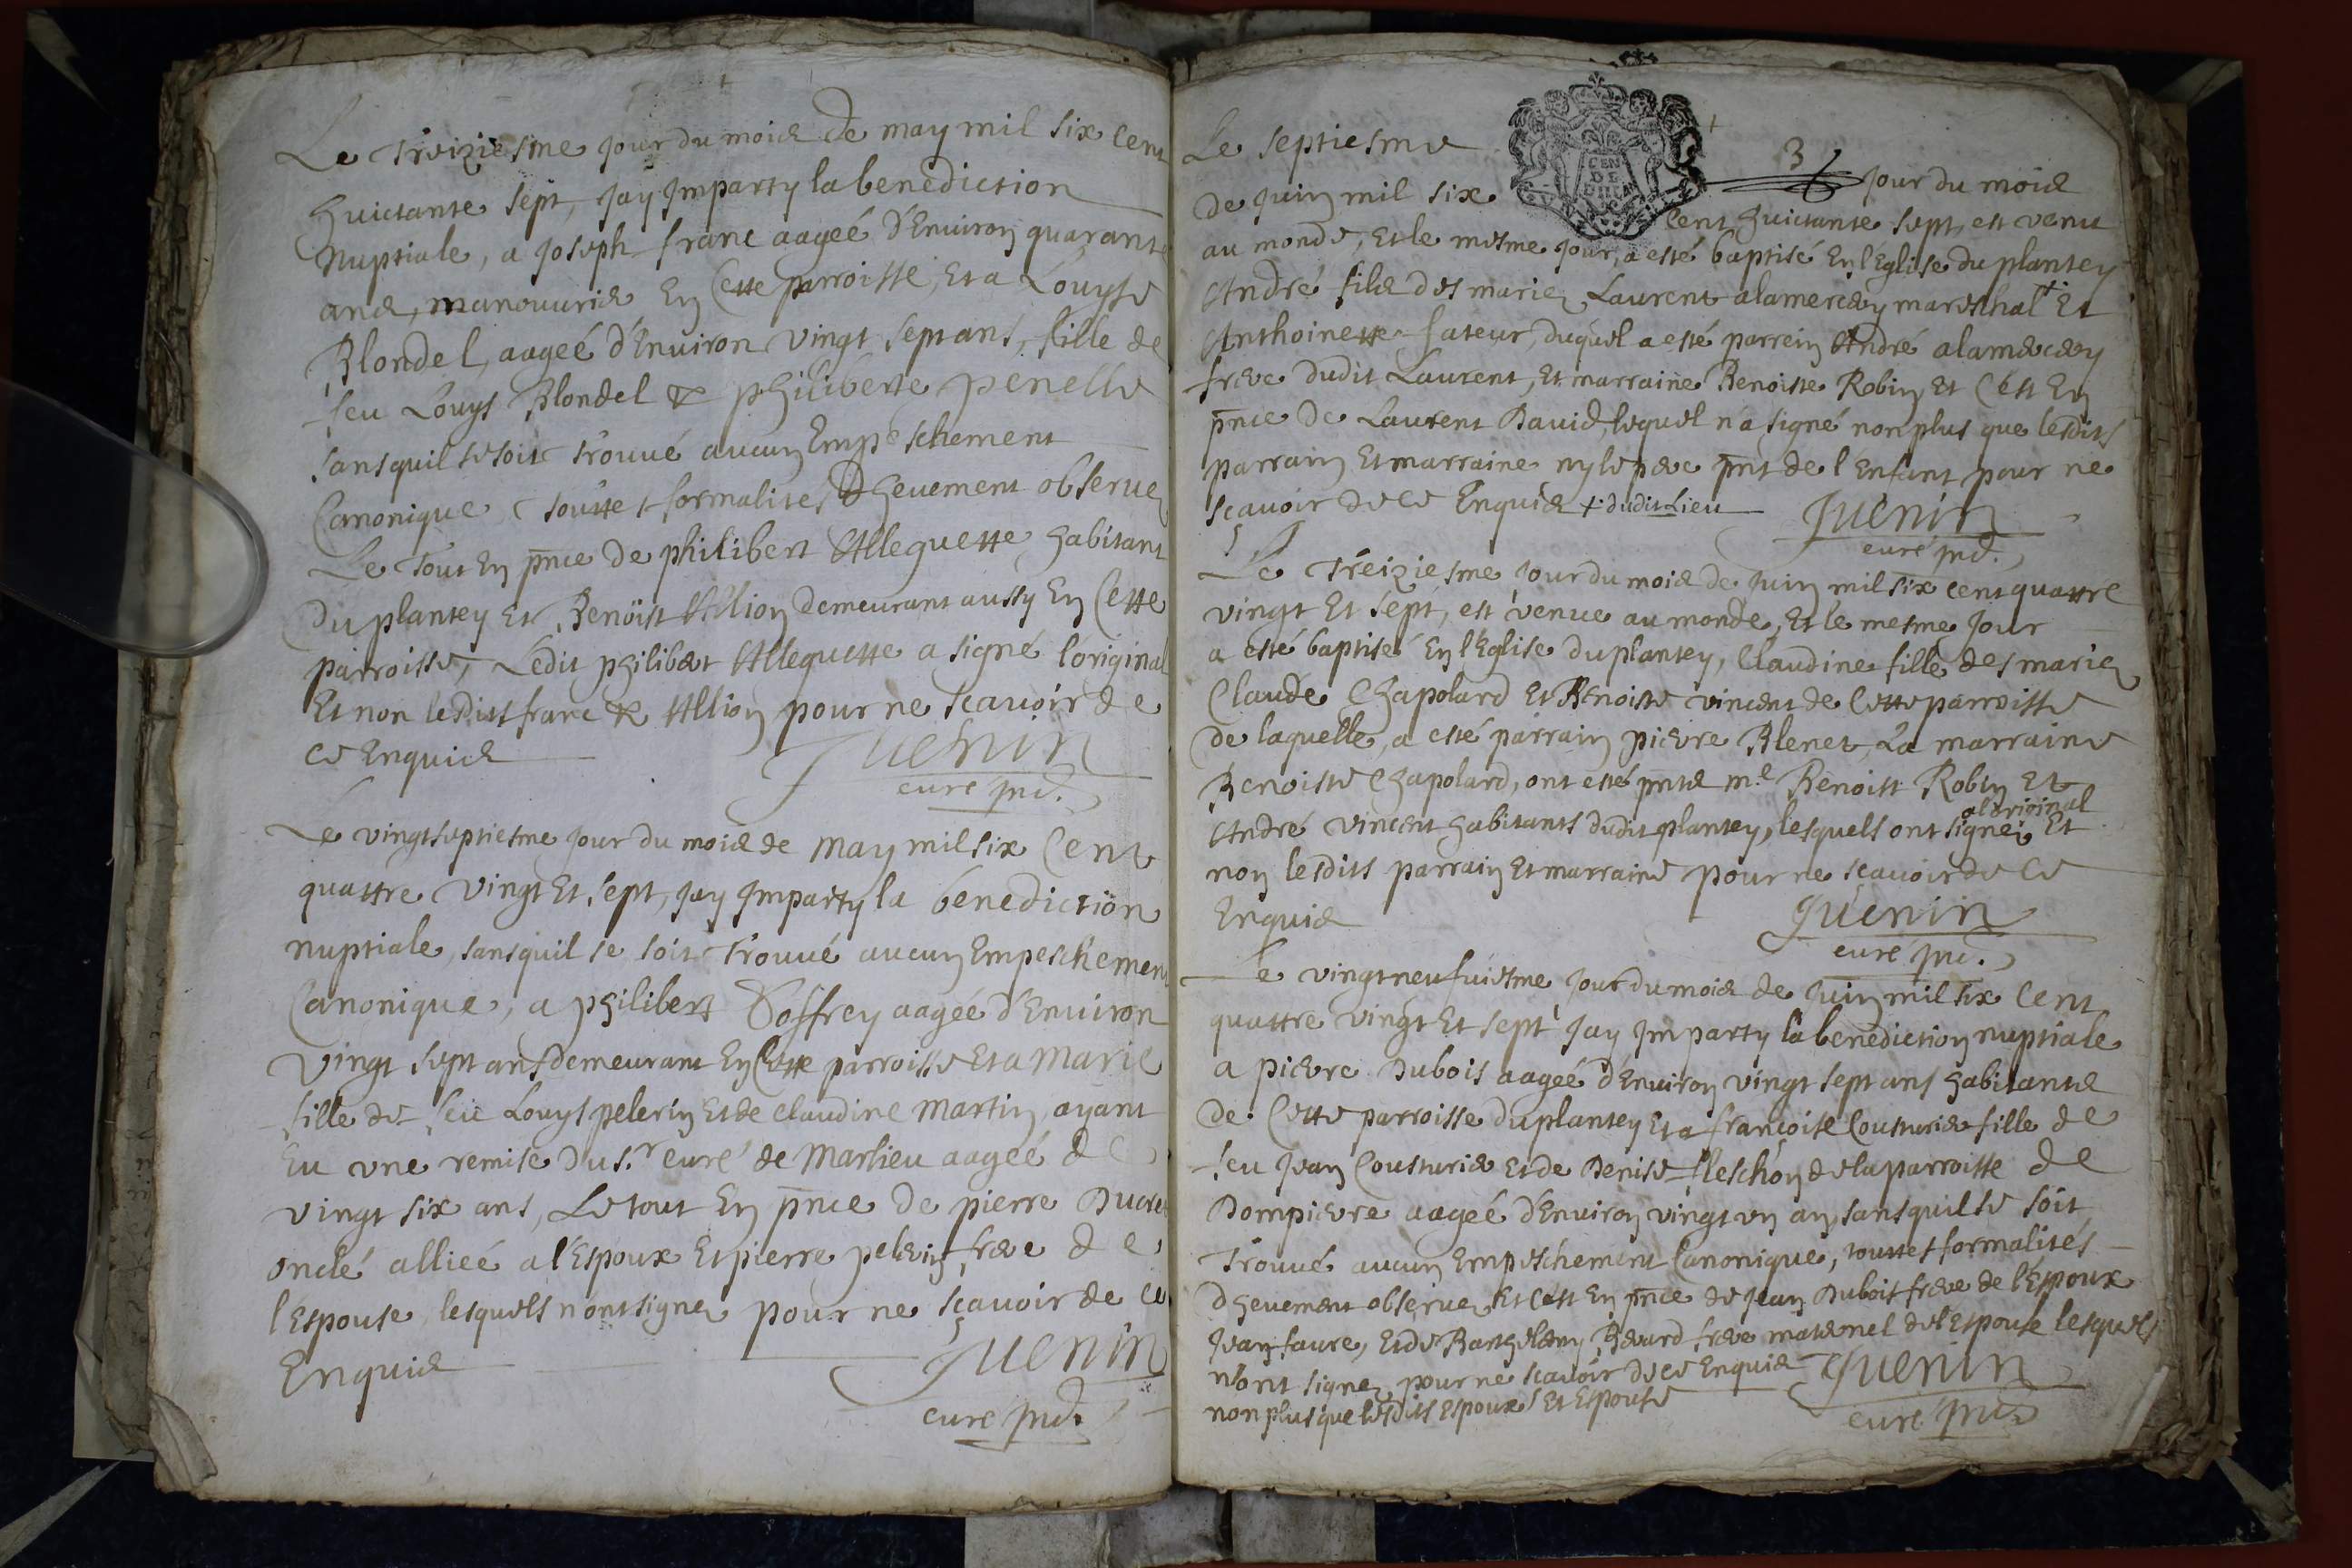 Le Treiziesme jour du mois de may mil six cent
huictante sept, jay Imparty la benediction
Nuptiale, a joseph franc aageé d'Enuiron quarante
ans, manouurier En Cette parroisse, Et a Louyse
Blondel, aageé d'Enuiron vingt sept ans, fille de
feu Louys Blondel & philiberte penelle
sans quil se soit trouué aucun Empeschement
Canonique touttes formalites dheuement obseruez
Le tout En pnce de philibert Alleguette, habitant
du plantey Et Benoist Allion demeurant aussy En Cette
parroisse, Ledit philibert Alleguette a signé l'original
Et non lesdits franc & Allion pour ne scauoir de
ce Enquis
Juenin
curé
Le vingtseptiesme jour du mois de may mil six Cent
quattre vingt Et sept, jay Imparty la benediction
nuptiale, sans quil se soit trouué aucun Empeschement
Canonique, a philibert Joffrey aageé d'Enuiron
vingt sept ans demeurant En Cette parroisse Et a Marie
fille de feu Louys pelerin Et de claudine Martin, ayant
Eu vne remise du s.r curé de Marlieu aageé de
vingt six ans, Le tout En pnce de pierre Ducret
onclé allieé a l'Espoux Et pierre pelerin frere de
l'Espouse, lesquels n'ont signez pour ne scauoir de ce
Enquis
Juenin
curé
3
Le septiesme jour du mois
CEN
DE
de juin mil six Cent huictante sept, est venu
au monde, Et le mesme jour, a esté baptisé En l'Eglise du plantey
André fils des mariez Laurent alamercery mareschal + Et
Anthoinette fateur, duquel a esté parrein André alamercery
frere dudit Laurent, Et marraine Benoiste Robin, Et C'est En
pnce de Laurent Dauid, lequel n'a signé non plus que lesdits
parrain Et marraine ny le pere pnt de l'Enfant pour ne
scauoir de ce Enquis + dudit Lieu
Juenin
curé
Le Treiziesme jour du mois de juin mil six cent quattre
vingt Et sept, est venue au monde, Et le mesme jour
a esté baptisé En l'Eglise du plantey, Claudine fille des mariez
Claude Chapolard Et Benoiste vincent de Cette parroisse
de laquelle, a esté parrain pierre Blenet, La marraine
Benoiste Chapolard, ont esté pnts m.e Benoist Robin Et
André vincent habitants dudit plantey, lesquels ont signez a l'original Et
non lesdits parrain Et marraine pour ne scauoir de Ce
Enquis
Juenin
curé
Le vingtneufuiesme jour du mois de juin mil six Cent
quattre vingt Et sept jay Imparty la benediction nuptiale
a pierre Dubois aageé d'Enuiron vingt sept ans habitants
de Cette parroisse du plantey Et a francoise Cousturier fille de
feu jean Cousturier Et de Denise fleschon de la parroisse de
Dompierre aageé d'Enuiron vingt vn an, sans quil se soit
Trouué aucun Empeschement Canonique, touttes formalités
dheuement obseruez Et C'est En pnce de jean Dubois frere de l'Espoux
jean faure, Et de Barthelemy Berard frere maternel de l'Espouse lesquels
n'ont signez pour ne scauoir de ce Enquis
non plus que lesdits Espoux Et Espouse
Juenin
curé